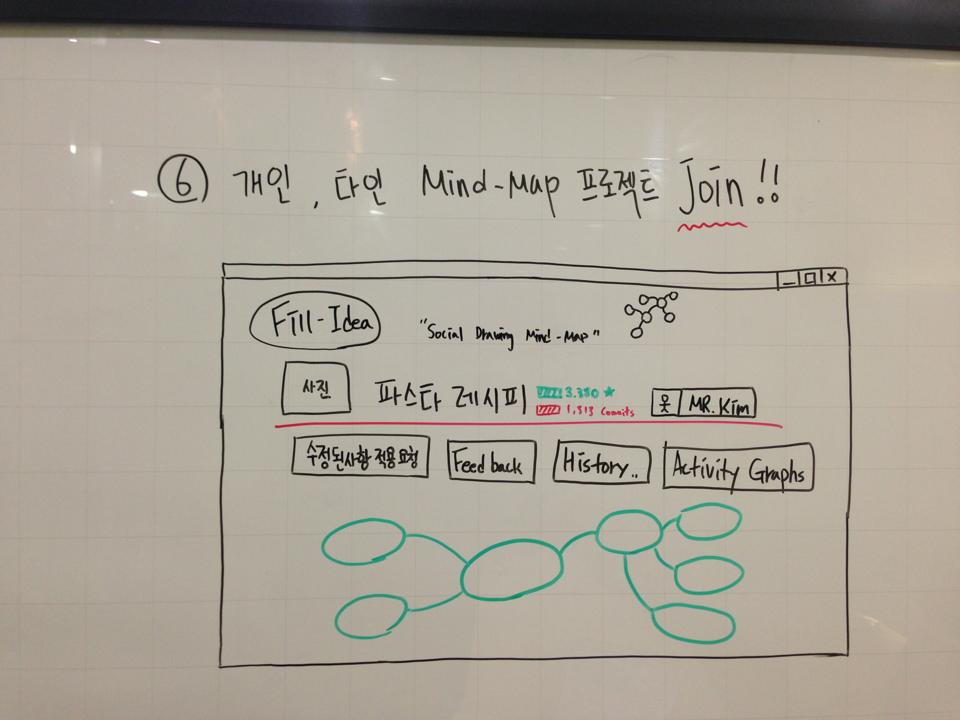 ⑥ 개인, 타인 Mind-Map 프로젝트 Join!!
Fill-Idea
"Social Drawing Mind-Map"
사진
파스타 레시피
3.380 ★
1,313 Commits
옷 MR.Kim
수정된사항 적용요청
Feedback
History..
Activity Graphs